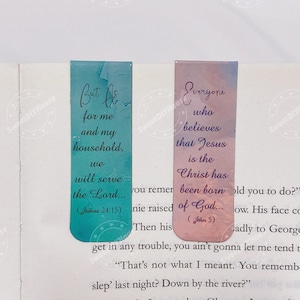 But As
for me
and my
household,
we
will serve
the Lord...
( Joshua 24:15 )
Everyone
who
believes
that Jesus
is the
Christ has
been born
of God...
( John 5 )
you remem
told you to do?"
nie raised
ow. His face co
Then his
adly to George
get in any trouble, you ain't gonna let me tend t
"That's not what I meant. You remembe
slep' last night? Down by the river?"